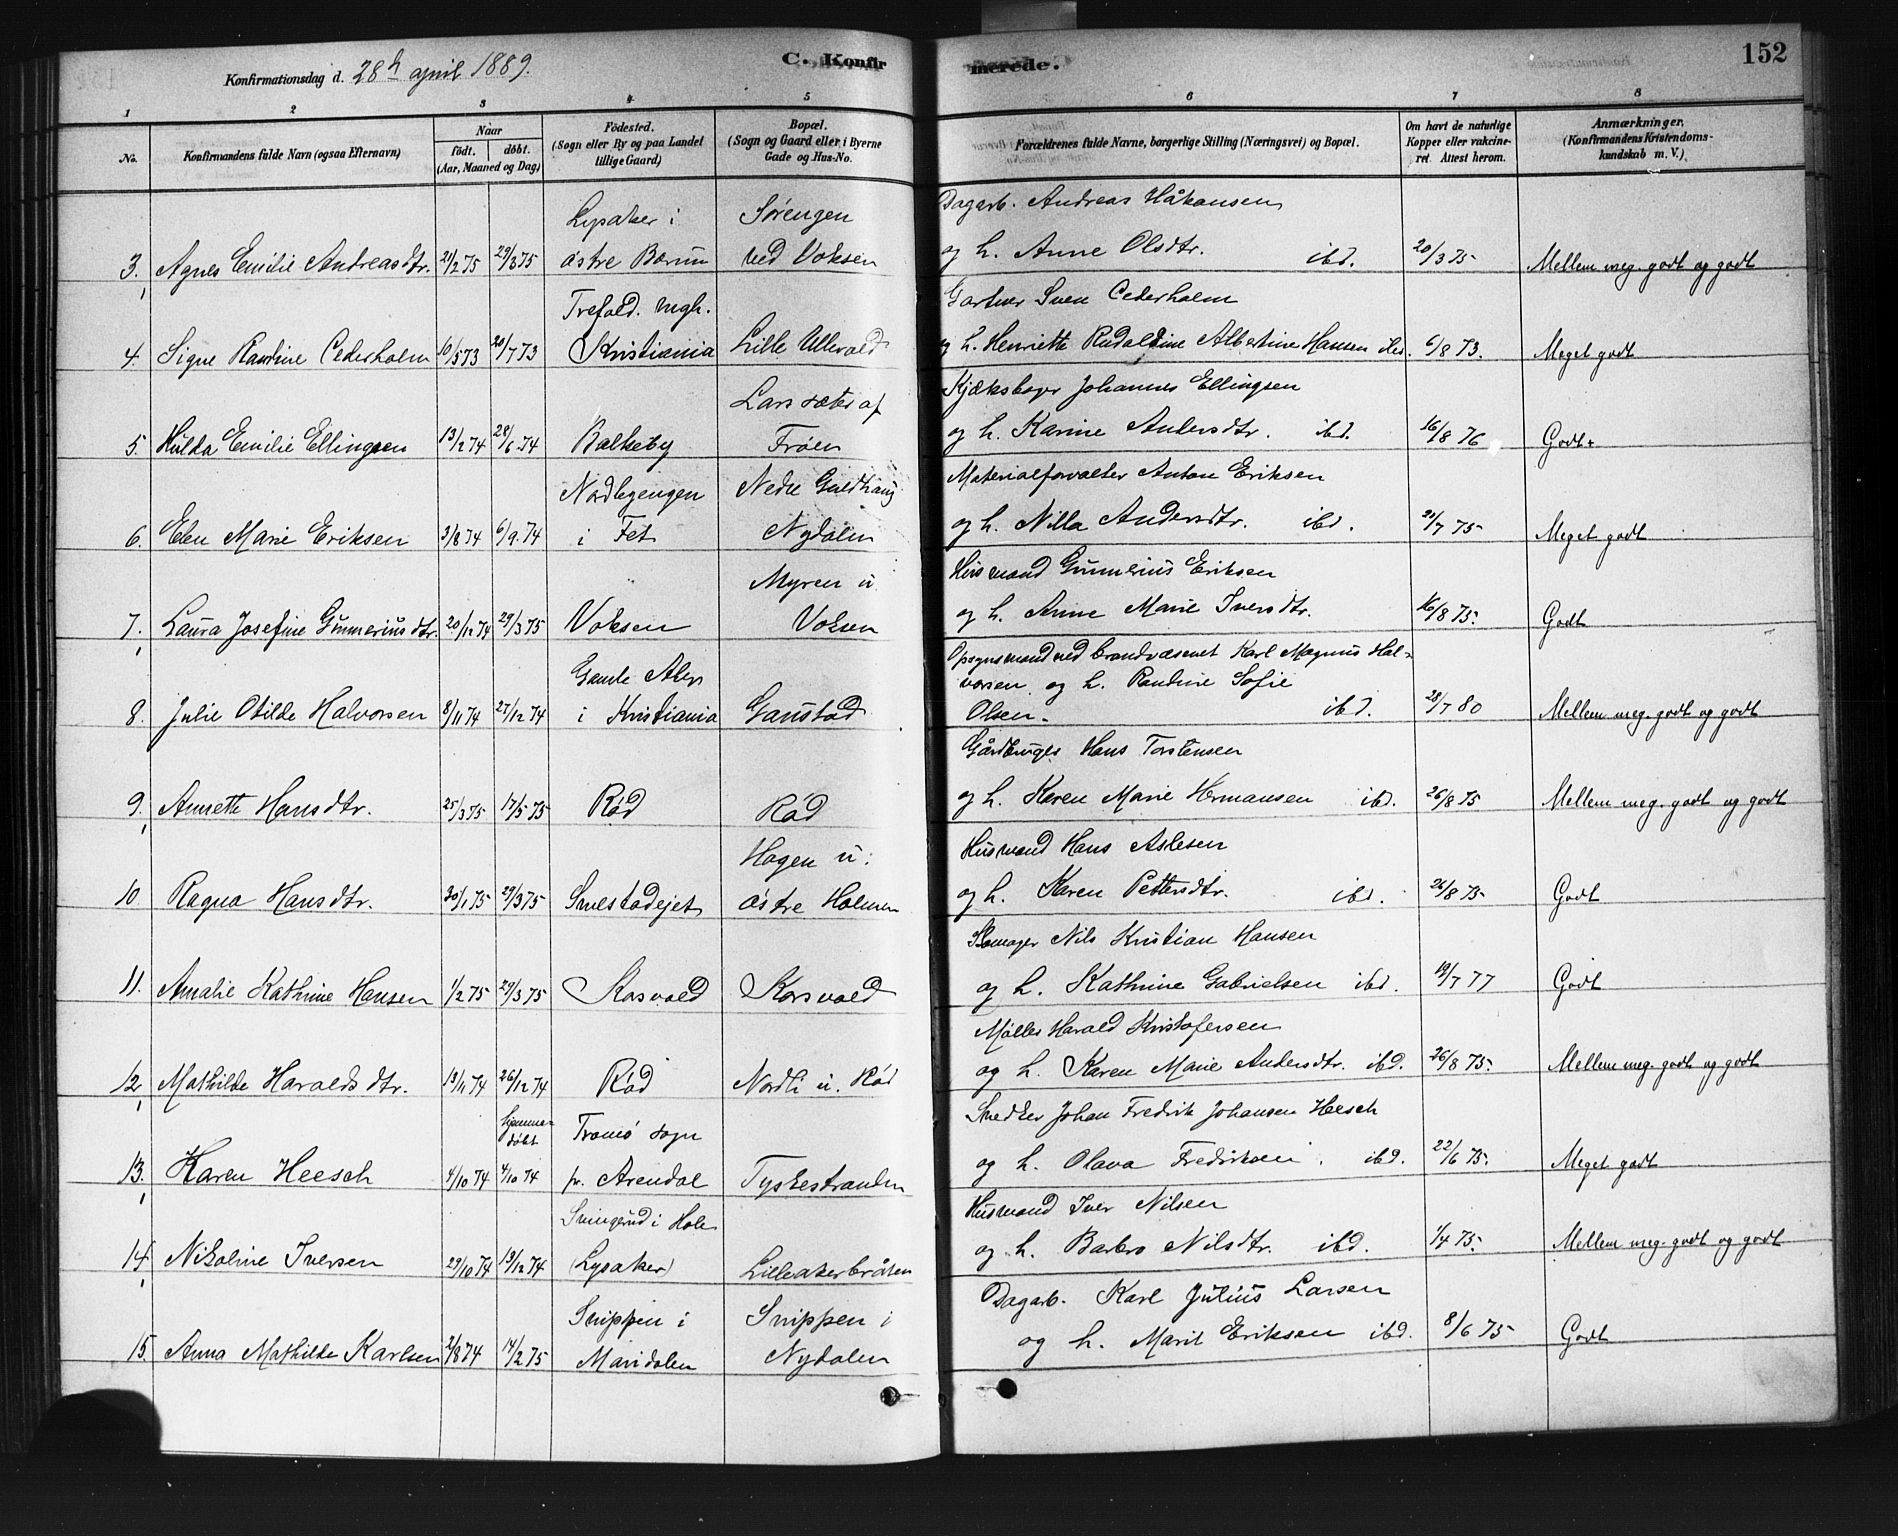 C. Konfirmerede.
152
Konfirmationsdag d. 28de april 1889.
1 2 3 4 5 6 7 8
No.
Konfirmandens fulde Navn (ogsaa Efternavn)
Naar
födt. döbt.
(Aar, Maaned og Dag)
Födested.
(Sogn eller By og paa Landet
tillige Gaard)
Bopæl.
(Sogn og Gaard eller i Byerne
Gade og Hus-No.
Forældrenes fulde Navne, borgerlige Stilling (Næringsvei) og Bopæl.
Om havt de naturlige
Kopper eller vakcine-
ret Attest herom.
Anmærkninger.
(Konfirmandens Kristendoms-
kundskab m. V.)
Lysaker i Sørengen Dagarb. Andreas Håkansen
3. Agnes Emilie Andreasdtr. 21/2 75 29/3 75 østre Bærum ved Voksen og h. Anne Olsdtr. ibd. 20/3 75 Mellem meg. godt og godt
Trefold. mgh. Gartner Sven Cederholm
4. Signe Randine Cederholm 10/5 73 20/7 73 Kristiania Lille Ullevold og h. Henriette Rudoldine Albertine Hansen ibd. 6/8 73. Meget godt
Lars sæter af Kjæksbager Johannes Ellingsen
5. Hulda Emilie Ellingsen 13/2 74 28/6 74 Balkeby Frøen og h. Karine Andersdtr. ibd. 16/8 76 Godt+
Nordlyengen Nedre Guldhaug Materialforvalter Anton Eriksen
6. Elen Marie Eriksen 3/8 74 6/9 74 i Fet Nydalen og h. Nilla Andersdtr. ibd. 21/7 75 Meget godt
Myren u. Husmand Gunnerius Eriksen
7. Laura Josefine Gunneriusdtr. 20/12 74 29/3 75 Voksen Voksen og h. Anne Marie Iversdtr. 16/8 75. Godt
Gamle Akers Opsynsmand ved brandvæsenet Karl Magnus Hal-
vorsen og h. Randine Sofie
8. Julie Otilde Halvorsen 8/11 74 27/12 74 i Kristiania Gaustad Olsen. ibd. 28/7 80 Mellem meg. godt og godt
Gårdbruger Hans Torstensen
9. Annette Hansdtr. 25/3 75 17/5 75 Rød Rød og h. Karen Marie Hermansen ibd. 26/8 75 Mellem meg. godt og godt
Hagen u. Husmand Hans Aslesen
10. Ragna Hansdtr. 30/1 75 29/3 75 Smestadejet østre Holmen og h. Karen Pettersdtr. ibd. 26/8 75 Godt
Skomager Nils Kristian Hansen
11. Amalie Kathrine Hansen 1/2 75 29/3 75 Korsvold Korsvold og h. Kathrine Gabrielsen ibd. 19/7 77 Godt
Møller Harald Kristofersen
12. Mathilde Haraldsdtr. 19/11 74 26/12 74 Rød Nordli u. Rød og h. Karen Marie Andersdtr. ibd. 26/8 75. Mellem meg. godt og godt
hjemme-
døbt Tromø sogn Snedker Johan Fredrik Johansen Heesch
13. Karen Heesch 4/10 74 4/10 74 pr. Arendal Tyskestranden og h. Olava Fredriksen. ibd. 22/6 75. Meget godt
i Hole Husmand Iver Nilsen
14. Nikoline Iversen 29/10 74 19/12 74 (Lysaker) Lilleakerbråten og h. Barbro Nilsdtr. ibd. 1/4 75. Mellem meg. godt og godt
Snippen i Snippen i Dagarb. Karl Julius Larsen
15. Anna Mathilde Karlsen 2/8 74 14/2 75 Maridalen Nydalen og h. Marit Eriksen ibd. 8/6 75 Godt